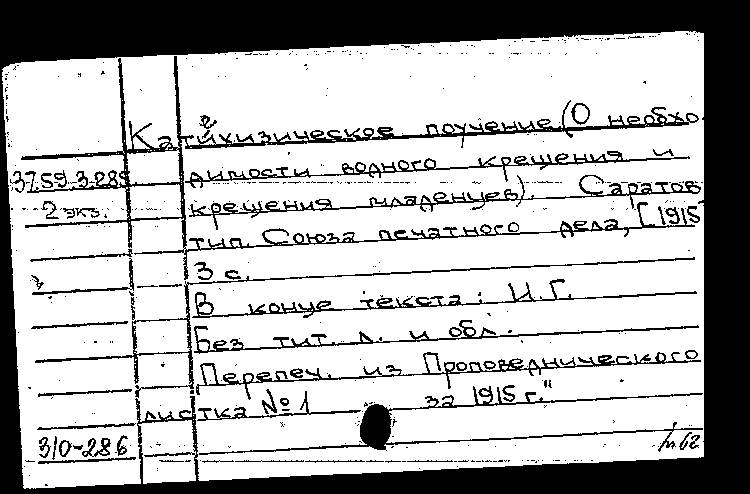 Катихизическое поучение (О необхо-
37.59.3.289 димости водного крещения и
2 экз. крещения младенцев). Саратов
тип. Союза печатного дела, [1915
3 с.
В конце текста: И.Г.
Без тит. л. и обл.
"Перепеч. из Проповеднического
листка №1 за 1915 г."
310-286